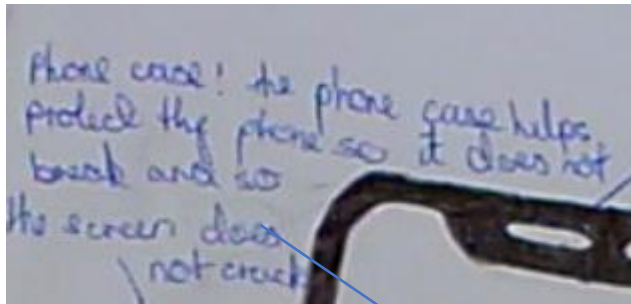 Phone case! the phone case helps
protect the phone so it does not
break and so
the screen does
not crack